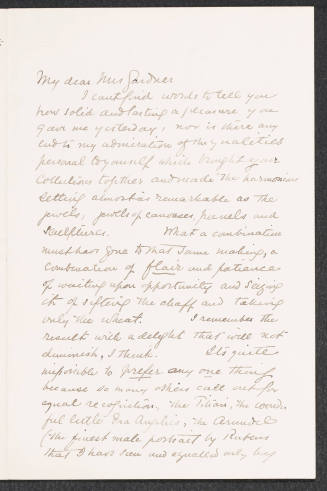 My dear Mrs Gardner
I can't find words to tell you
how solid and lasting a pleasure you
gave me yesterday; nor is there any
end to my admiration of the qualities
personal to yourself which brought your
Collections together and made the harmonious
setting almost as remarkable as the
jewels, jewels of canvases, panels and
sculptures. What a combination
must have gone to that same making, a
combination of flair and patience
of waiting upon opportunity and seizing
it of sifting the chaff and taking
only the wheat. I remember the
result with a delight that will not
diminish, I think. It is quite
impossible to prefer any one thing
because so many others call out for
equal recognition, the Titian, the wonder
ful little Fra Angelico; the Arundel
(the finest male portrait by Rubens
that I have seen and equalled only by